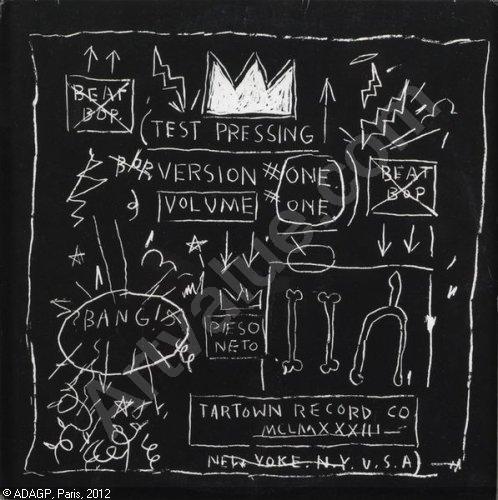 BEAT
BOP
(TEST PRESSING)
VERSION # ONE
VOLUME # ONE
BEAT
BOP
BANG!
PESO
NETO
TARTOWN RECORD CO
MCLMXXXIII
NEW YORK. N.Y. U.S.A)
Artvalue.com
© ADAGP, Paris, 2012